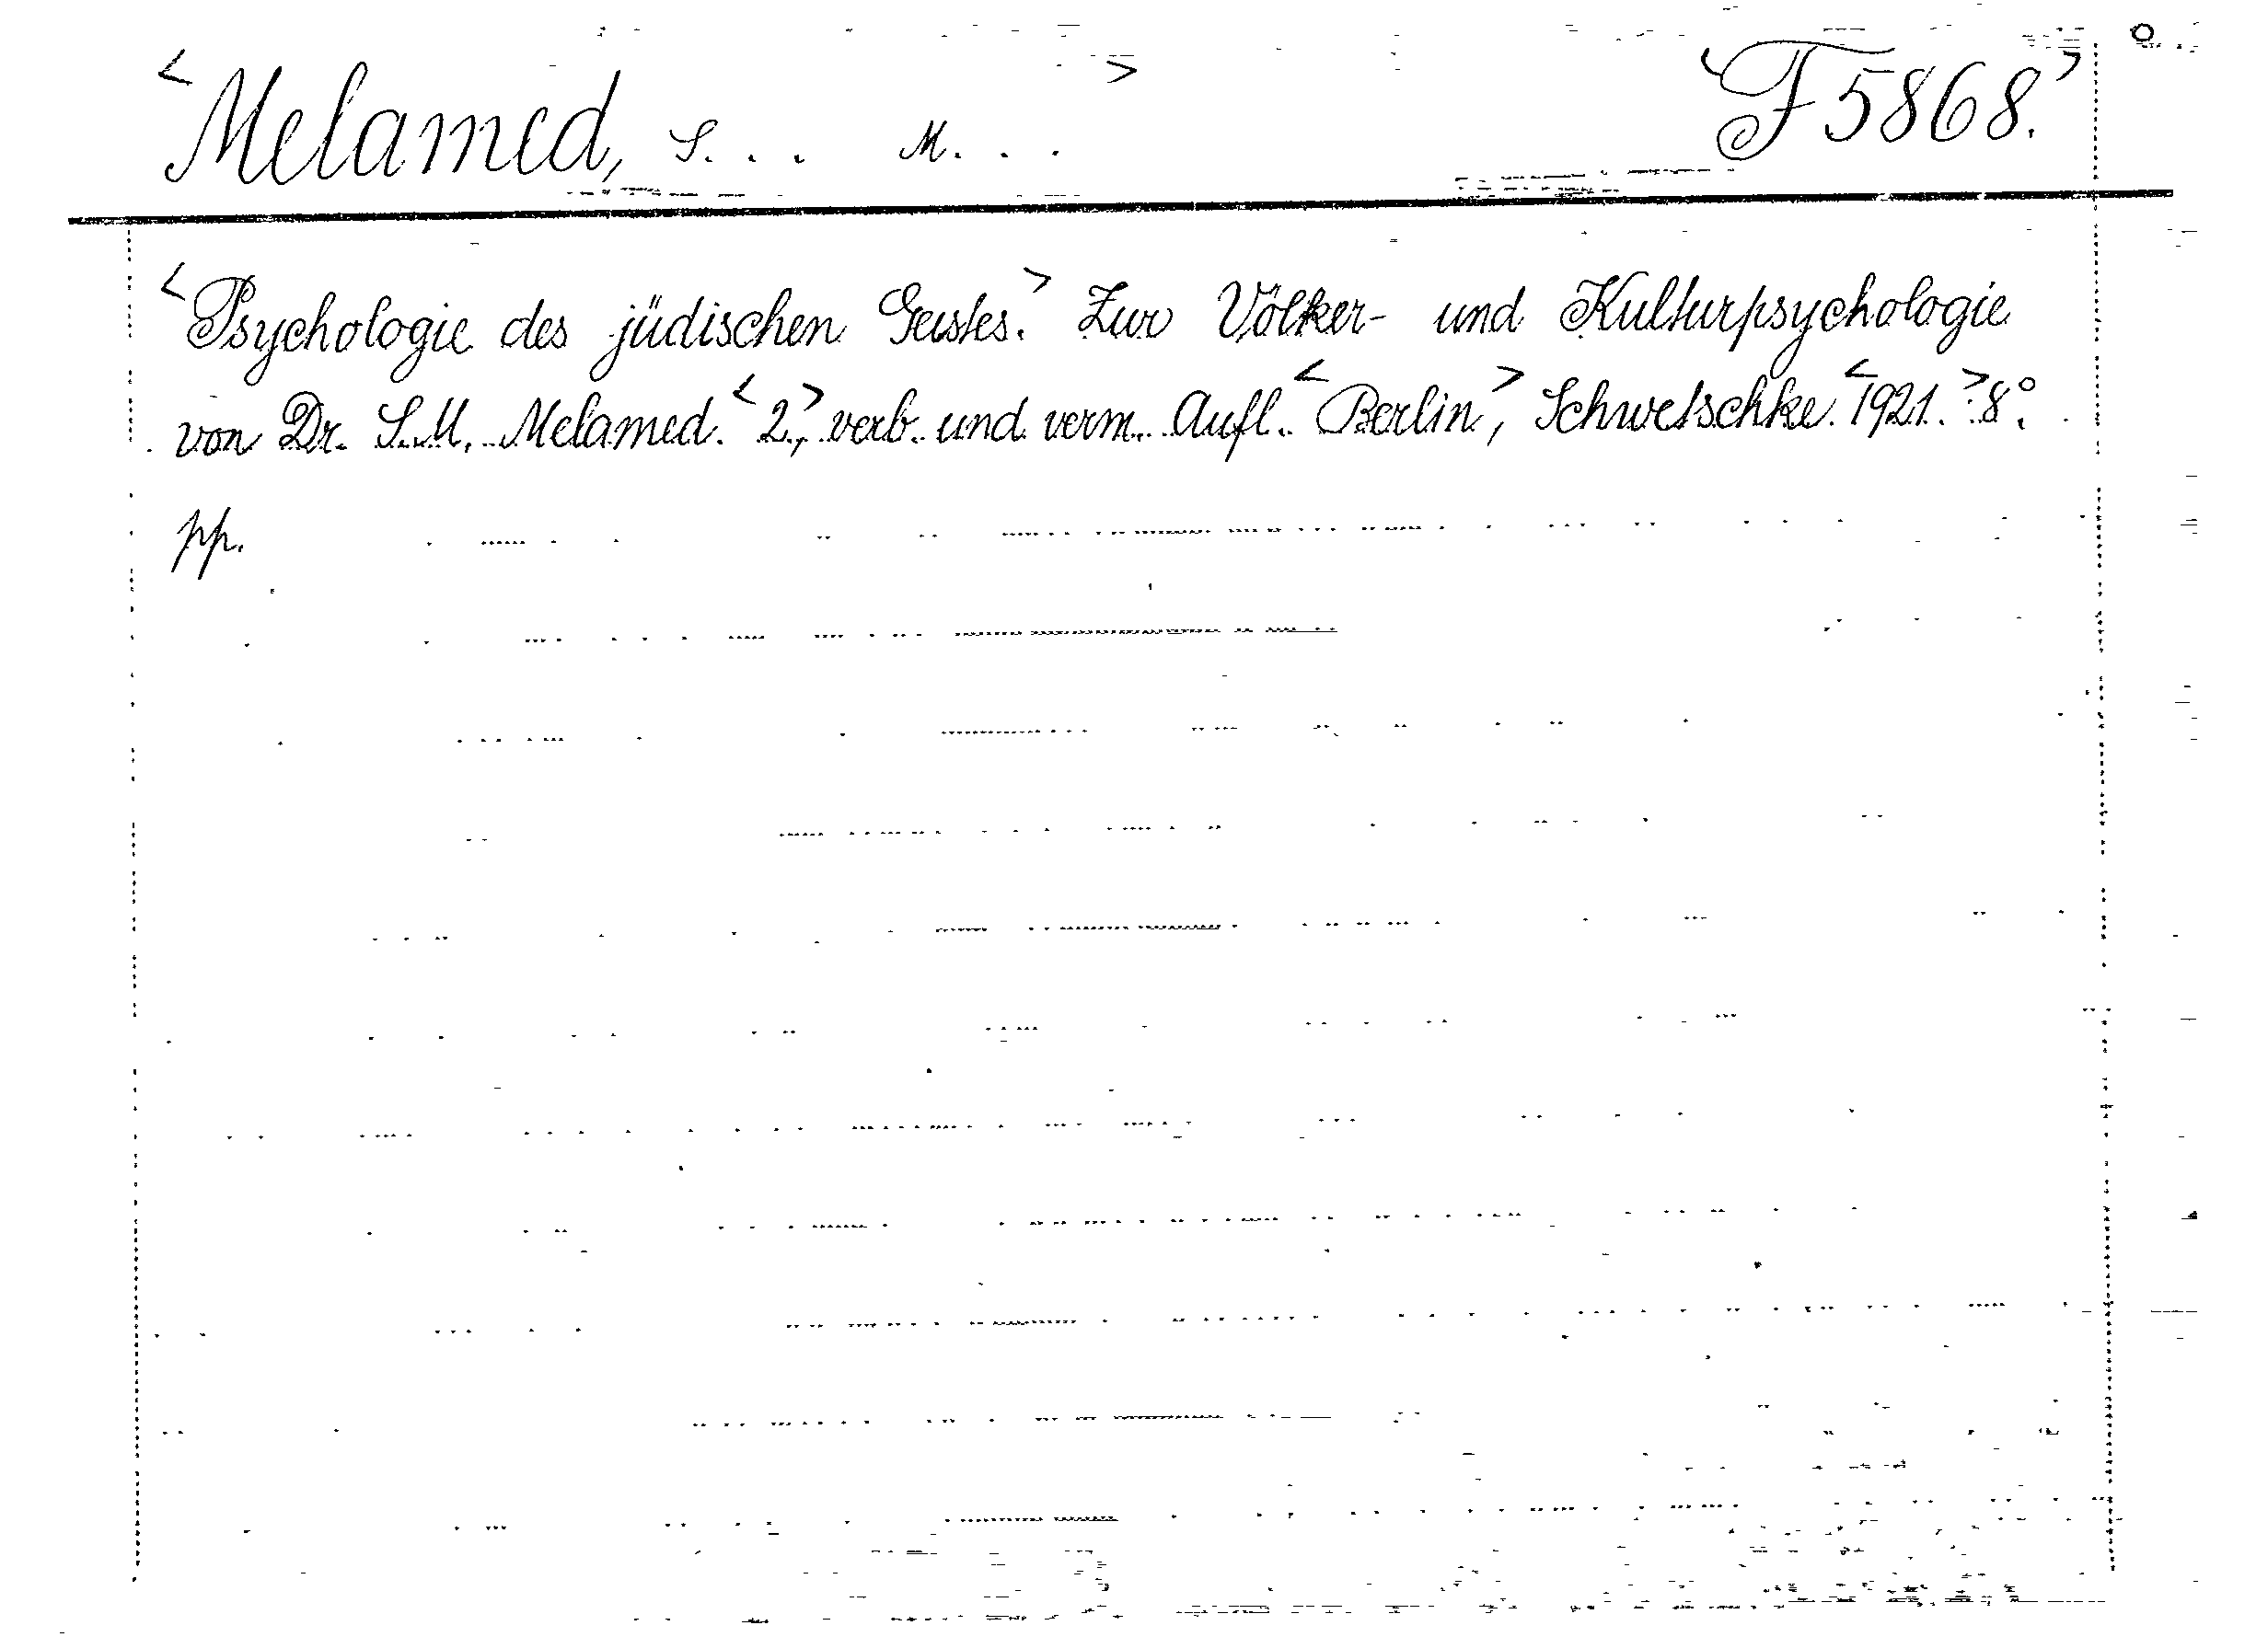 <Melamed, S. . . M. . . > <F 5868.>
<Psychologie des jüdischen Geistes.> Zur Völker- und Kulturpsychologie
von Dr. S. M. Melamed. <2.,> verb. und verm. Aufl. <Berlin>, Schwetschke. <1921.> 8°.
pp.